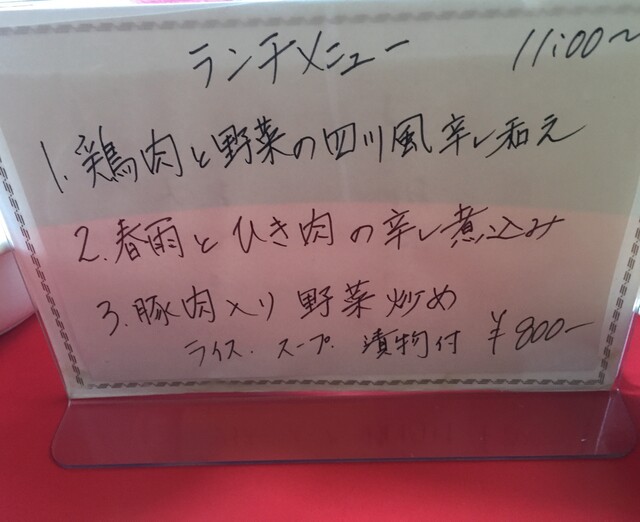 ランチメニュー 11:00~
1. 鶏肉と野菜の四川風辛し和え
2. 春雨とひき肉の辛し煮込み
3. 豚肉入り野菜炒め
ライス.スープ.漬物付 ¥800-